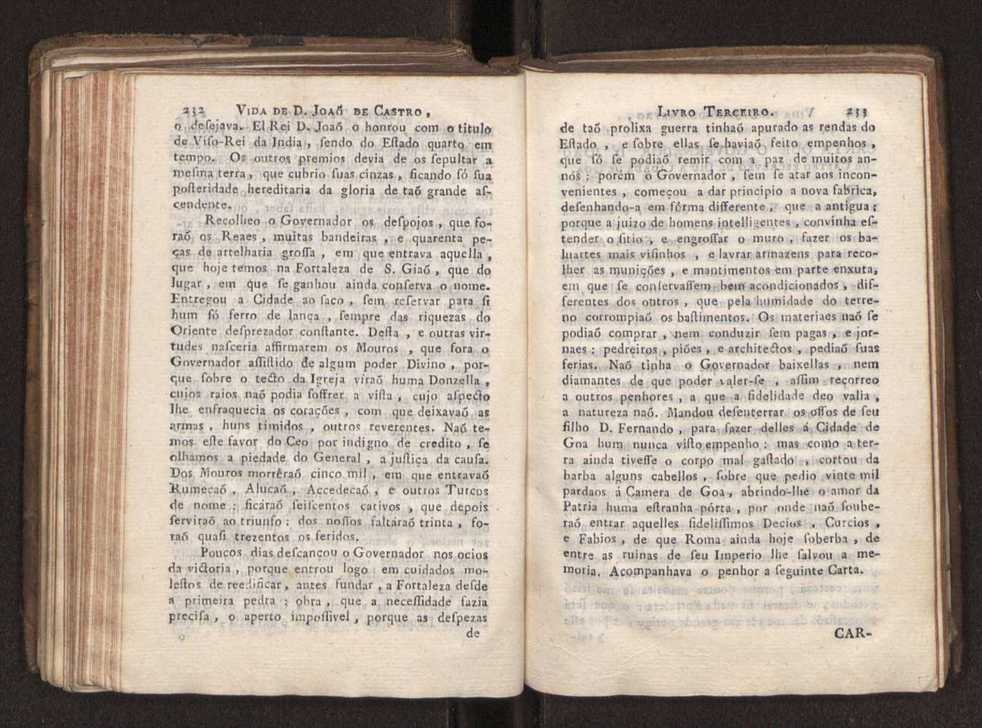 232 VIDA DE D. JOAÕ DE CASTRO,
o deſejava. El Rei D. Joaõ o honrou com o titulo
de Viſo-Rei da India, ſendo do Eſtado quarto em
tempo. Os outros premios devia de os ſepultar a
meſma terra, que cubrio ſuas cinzas, ficando ſó ſua
poſteridade hereditaria da gloria de taõ grande aſ-
cendente.
Recolheo o Governador os deſpojos, que fo-
raõ os Reaes, muitas bandeiras, e quarenta pe-
ças de artelharia groſſa, em que entrava aquella,
que hoje temos na Fortaleza de S. Giaõ, que do
lugar, em que ſe ganhou ainda conſerva o nome.
Entregou a Cidade ao ſaco, ſem reſervar para ſi
hum ſó ferro de lança, ſempre das riquezas do
Oriente deſprezador conſtante. Deſta, e outras vir-
tudes naſceria affirmarem os Mouros, que fora o
Governador aſſiſtido de algum poder Divino, por-
que ſobre o tecto da Igreja viraõ huma Donzella,
cujos raios naõ podia ſoffrer a viſta, cujo aſpecto
lhe enfraquecia os corações, com que deixavaõ as
armas, huns timidos, outros reverentes. Naõ te-
mos eſte favor do Ceo por indigno de credito, ſe
olhamos a piedade do General, a juſtiça da cauſa.
Dos Mouros morrêraõ cinco mil, em que entravaõ
Rumecaõ, Alucaõ, Accedecaõ, e outros Turcos
de nome; ficáraõ ſeiſcentos cativos, que depois
ſerviraõ ao triunfo: dos noſſos faltáraõ trinta, fo-
raõ quaſi trezentos os feridos.
Poucos dias deſcançou o Governador nos ocios
da victoria, porque entrou logo em cuidados mo-
leſtos de reedificar, antes fundar, a Fortaleza deſde
a primeira pedra; obra, que a neceſſidade fazia
preciſa, o aperto impoſſivel, porque as deſpezas
de
LIVRO TERCEIRO. 233
de taõ prolixa guerra tinhaõ apurado as rendas do
Eſtado, e ſobre ellas ſe haviaõ feito empenhos,
que ſó ſe podiaõ remir com a paz de muitos an-
nos; porém o Governador, ſem ſe atar aos incon-
venientes, começou a dar principio a nova fabrica,
deſenhando-a em fórma differente, que a antigua;
porque a juizo de homens intelligentes, convinha eſ-
tender o ſitio, e engroſſar o muro, fazer os ba-
luartes mais viſinhos, e lavrar armazens para reco-
lher as munições, e mantimentos em parte enxuta,
em que ſe conſervaſſem bem acondicionados, diſ-
ferentes dos outros, que pela humidade do terre-
no corrompiaõ os baſtimentos. Os materiaes naõ ſe
podiaõ comprar, nem conduzir ſem pagas, e jor-
naes: pedreiros, piões, e architectos, pediaõ ſuas
ferias. Naõ tinha o Governador baixellas, nem
diamantes de que poder valer-ſe, aſſim recorreo
a outros penhores, a que a fidelidade deo valia,
a natureza naõ. Mandou deſenterrar os oſſos de ſeu
filho D. Fernando, para fazer delles á Cidade de
Goa hum nunca viſto empenho: mas como a ter-
ra ainda tiveſſe o corpo mal gaſtado, cortou da
barba alguns cabellos, ſobre que pedio vinte mil
pardaos á Camera de Goa, abrindo-lhe o amor da
Patria huma eſtranha pórta, por onde naõ ſoube-
raõ entrar aquelles fideliſſimos Decios, Curcios,
e Fabios, de que Roma ainda hoje ſoberba, de
entre as ruinas de ſeu Imperio lhe ſalvou a me-
moria. Acompanhava o penhor a ſeguinte Carta.
CAR-